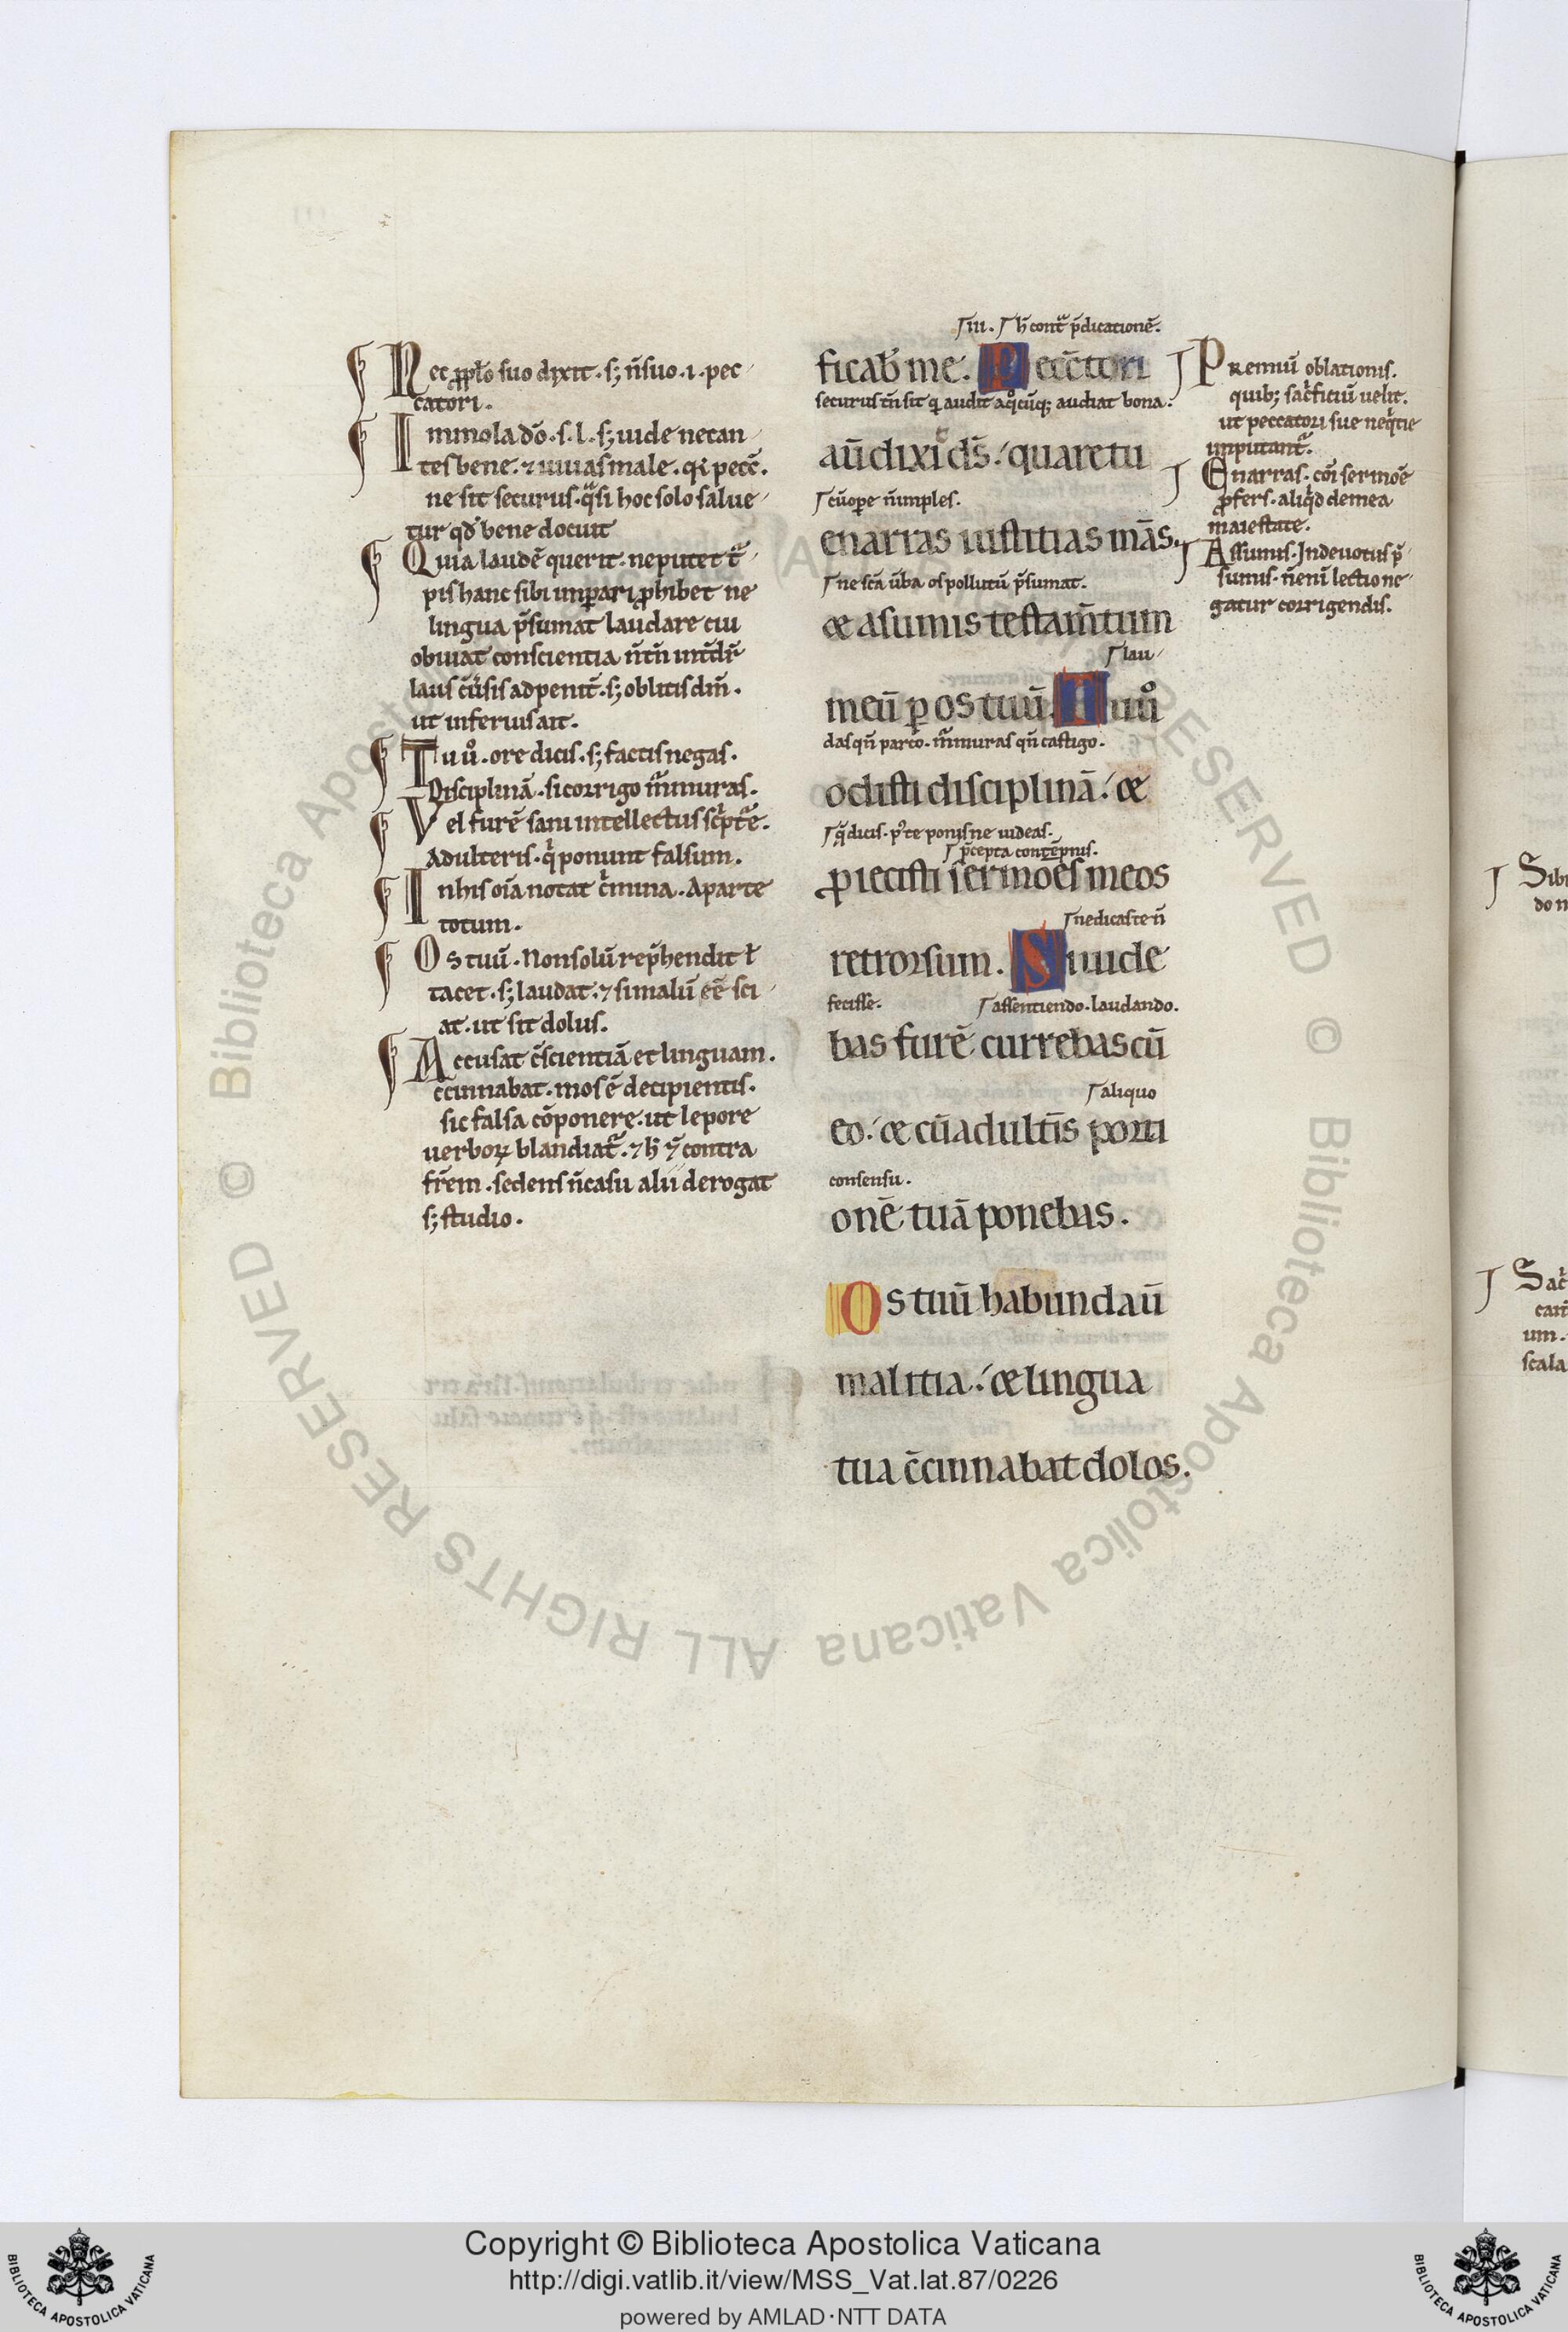 Nec ꝓpło suo dixit · s; ñ suo · i · pec
catori ·
Immola dō · s · l · s; uide ne can
tes bene · ⁊ uiuas male · qi pecc̄ ·
ne sit securus · qͣsi hoc solo salue
tur qđ bene docuit
Quia laudē querit · ne putet t̄
pis hanc sibi inꝑari ꝓhibet ne
lingua p̄sumat laudare cui
obuiat conscientia
laus · s; oblitis dn̄i ·
ut inferius ait ·
Tu ů · ore dicis · s; factis negas ·
Disciplinā · si corrigo mͬmuras ·
Vel furē sani intellectus
Adulteris · qͥ ponunt falsum ·
In his oīa notat cͥmina · A parte
totum ·
Os tuū · Non solū rep̄hendit ł
tacet · s; laudat · ⁊ si malū eē sci
at · ut sit dolus ·
Accusat c̄scientiā et linguam ·
c̄cinnabat · mos ē decipientis ·
sic falsa cōponere · ut lepore
uerboꝝ blandiat̄ · ⁊ contra
frēm · sedens ñ casu alii derogat
s; studio ·
iii · h̄ contͣ p̄dicationē ·
ficab̄ me · Pecc̄tori
securus tn̄ sit q audit a qͦcūq; audiat bona ·
aū dixit d̄s · quare tu
cū oꝑe ñ imples ·
enarras iustitias mās ·
ne sc̄a ūba os pollutū p̄sumat ·
& asumis testam̄tum
lau
meū ꝑ os tuū · Tu ů
das qn̄ parco · mͬmuras qn̄ castigo ·
odisti disciplinā · &
q̄ dicis · pͦ te ponis ne uideas ·
p̄cepta contēpnis ·
ꝓiecisti sermoēs meos
ne dicas te ñ
retrorsum · Si uide
fecisse · assentiendo · laudando ·
bas furē currebas cū
aliquo
eo · & cū adult̄is porti
consensu ·
onē tuā ponebas ·
Os tuū habundaū
malitia · & lingua
tua c̄cinnabat dolos ·
Premiū oblationis ·
quib; sacͥficiū uelit ·
ut peccatori sue neqͥtie
imputant̄ ·
Enarras · sermoē
ꝓfers · aliqͥd de mea
maiestate ·
Assumis · Indeuotus p̄
sumis · ñ enī lectio ne
gatur corrigendis ·
Copyright © Biblioteca Apostolica Vaticana
http://digi.vatlib.it/view/MSS_Vat.lat.87/0226
powered by AMLAD·NTT DATA
BIBLIOTECA APOSTOLICA VATICANA
BIBLIOTECA APOSTOLICA VATICANA
© Biblioteca Apostolica Vaticana ALL RIGHTS RESERVED